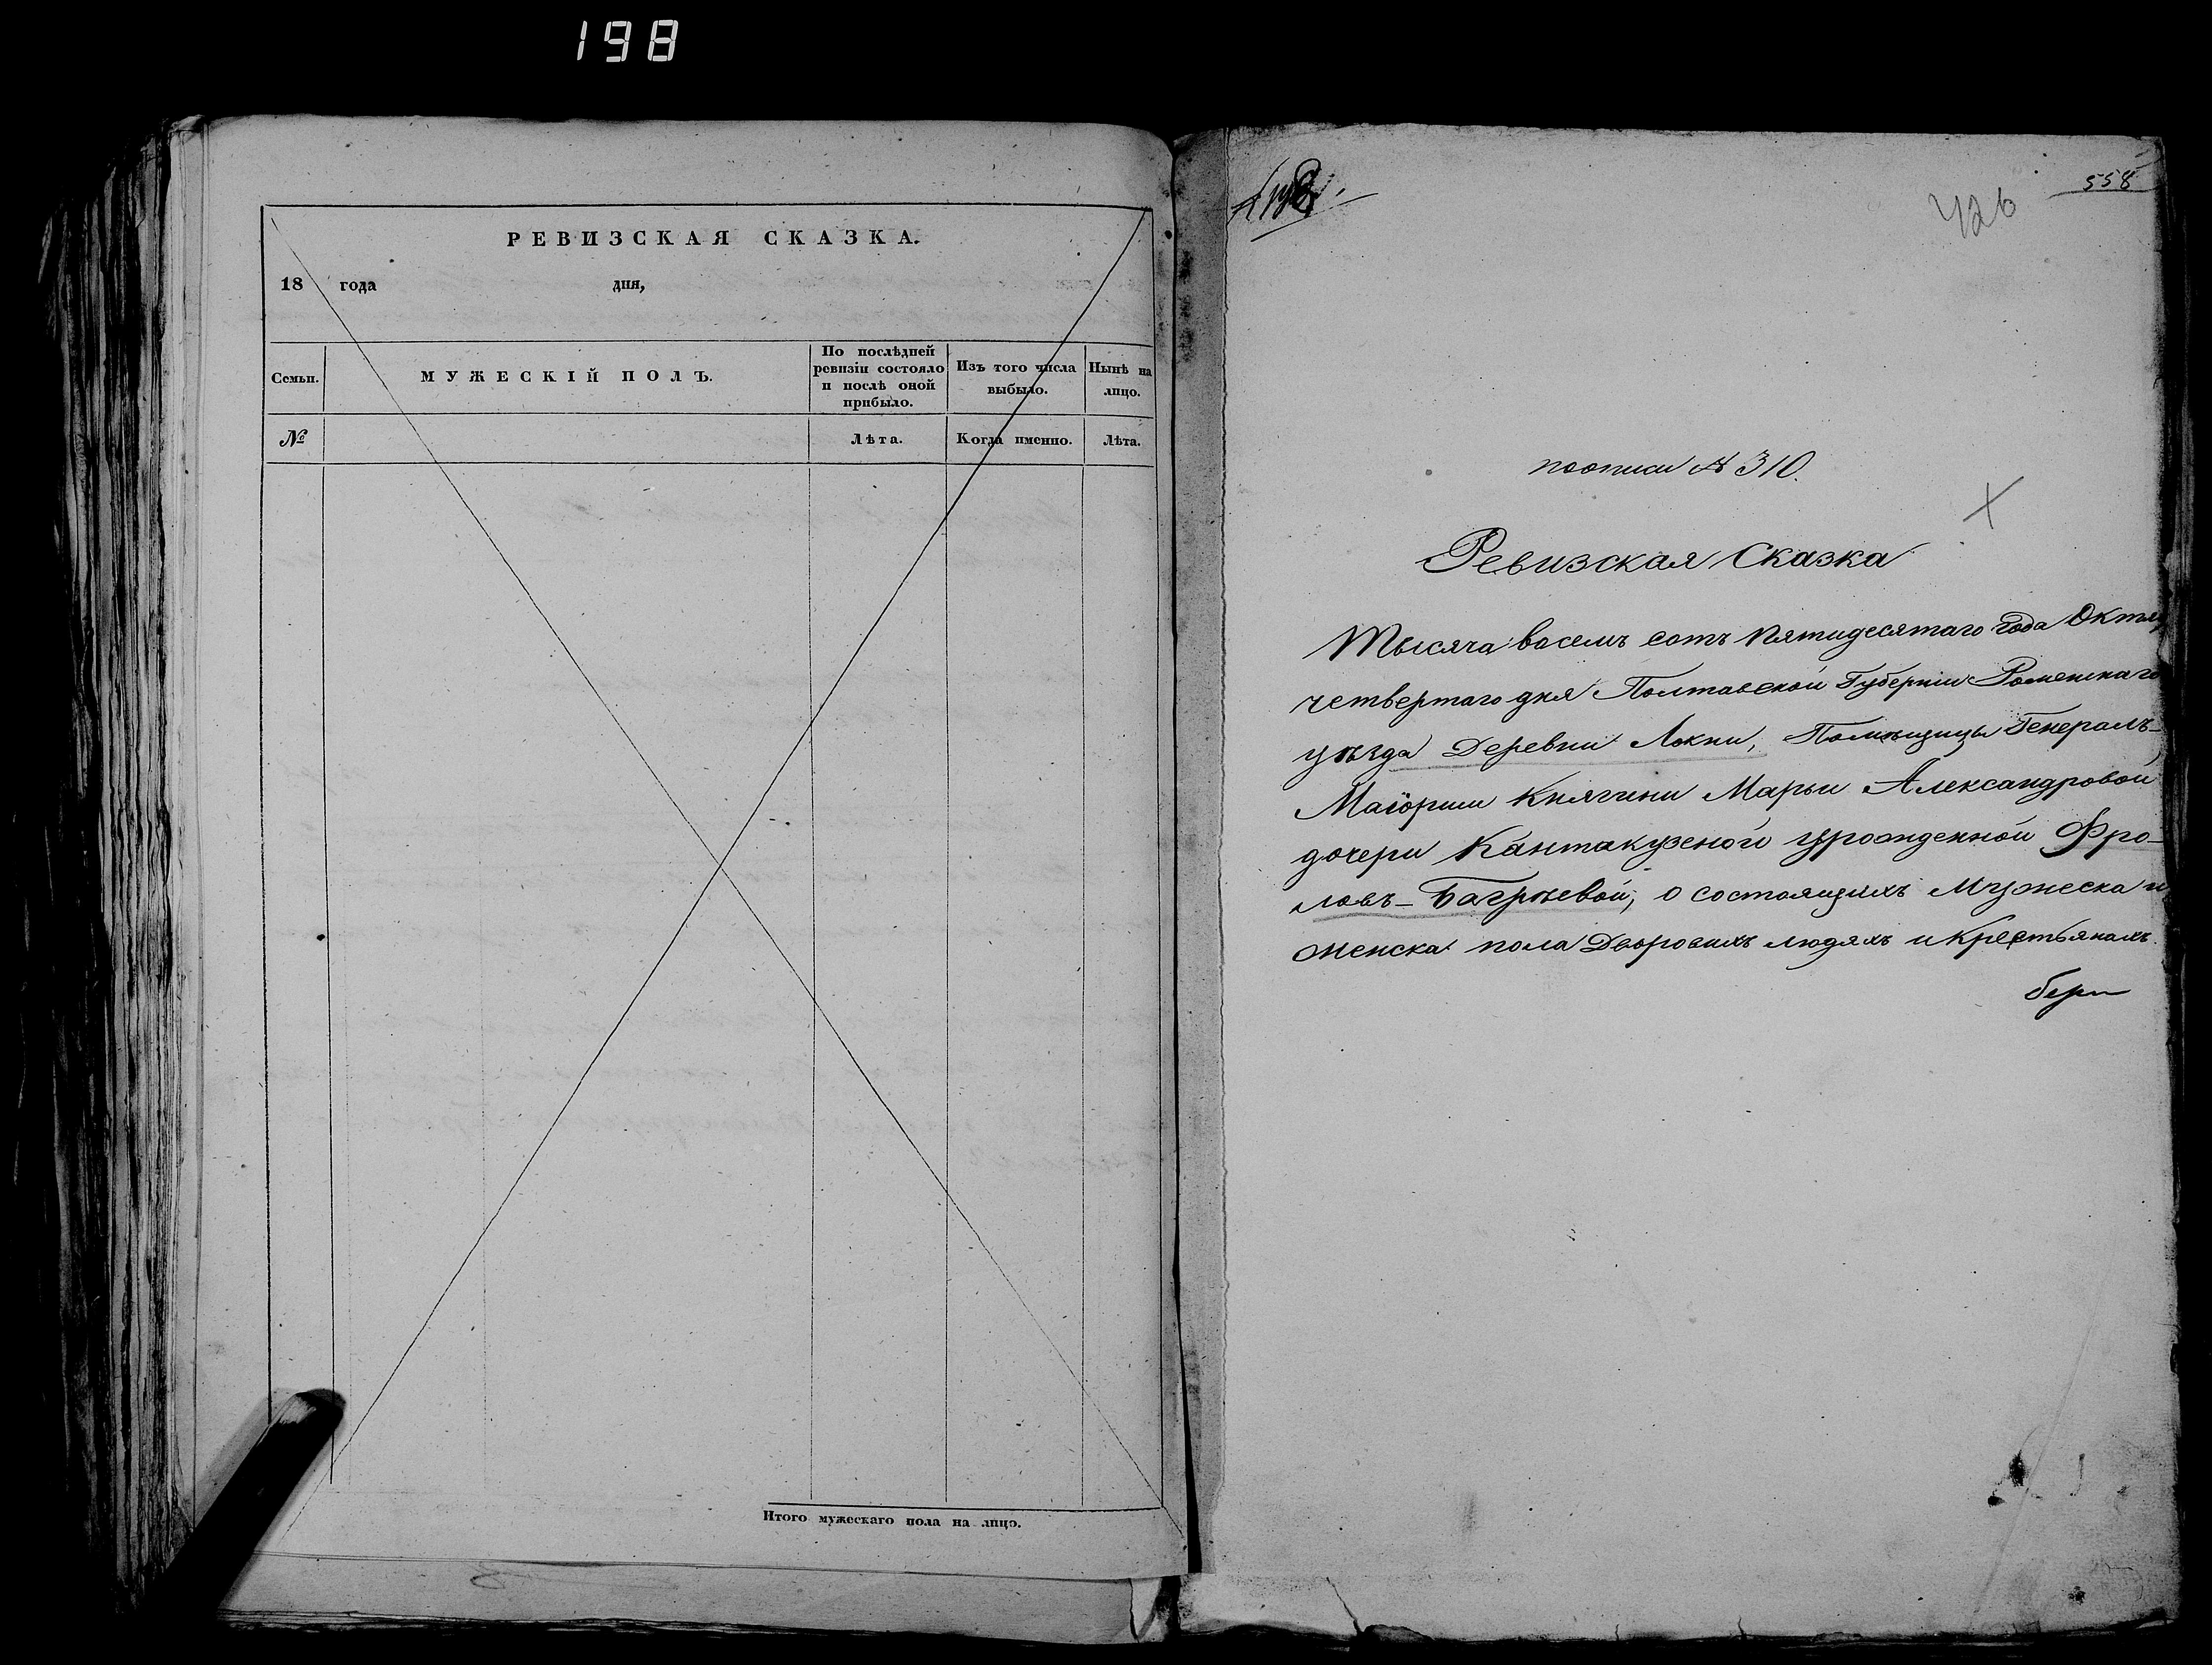 198
РЕВИЗСКАЯ СКАЗКА.
18 года дня,
Семьи.
МУЖЕСКІЙ ПОЛЪ.
По послѣдней ревизіи состояло и послѣ оной прибыло.
Изъ того числа выбыло.
Нынѣ на лицо.
№
Лѣта.
Когда именно.
Лѣта.
Итого мужескаго пола на лицо.
558
426
поописи № 310.
Ревизская Сказка
Тысяча восемь сотъ пятидесятаго года Октя
четвертаго дня Полтавской Губерніи Роменскаго
уѣзда Деревни Локни, Помѣщицы Генералъ-
Маіорши Княгини Марьи Александровой
дочери Кантакузеной урожденной Фро-
ловъ-Багрѣевой, о состоящихъ Мужеска и
женска пола Дворовыхъ людяхъ и Крестьянахъ.